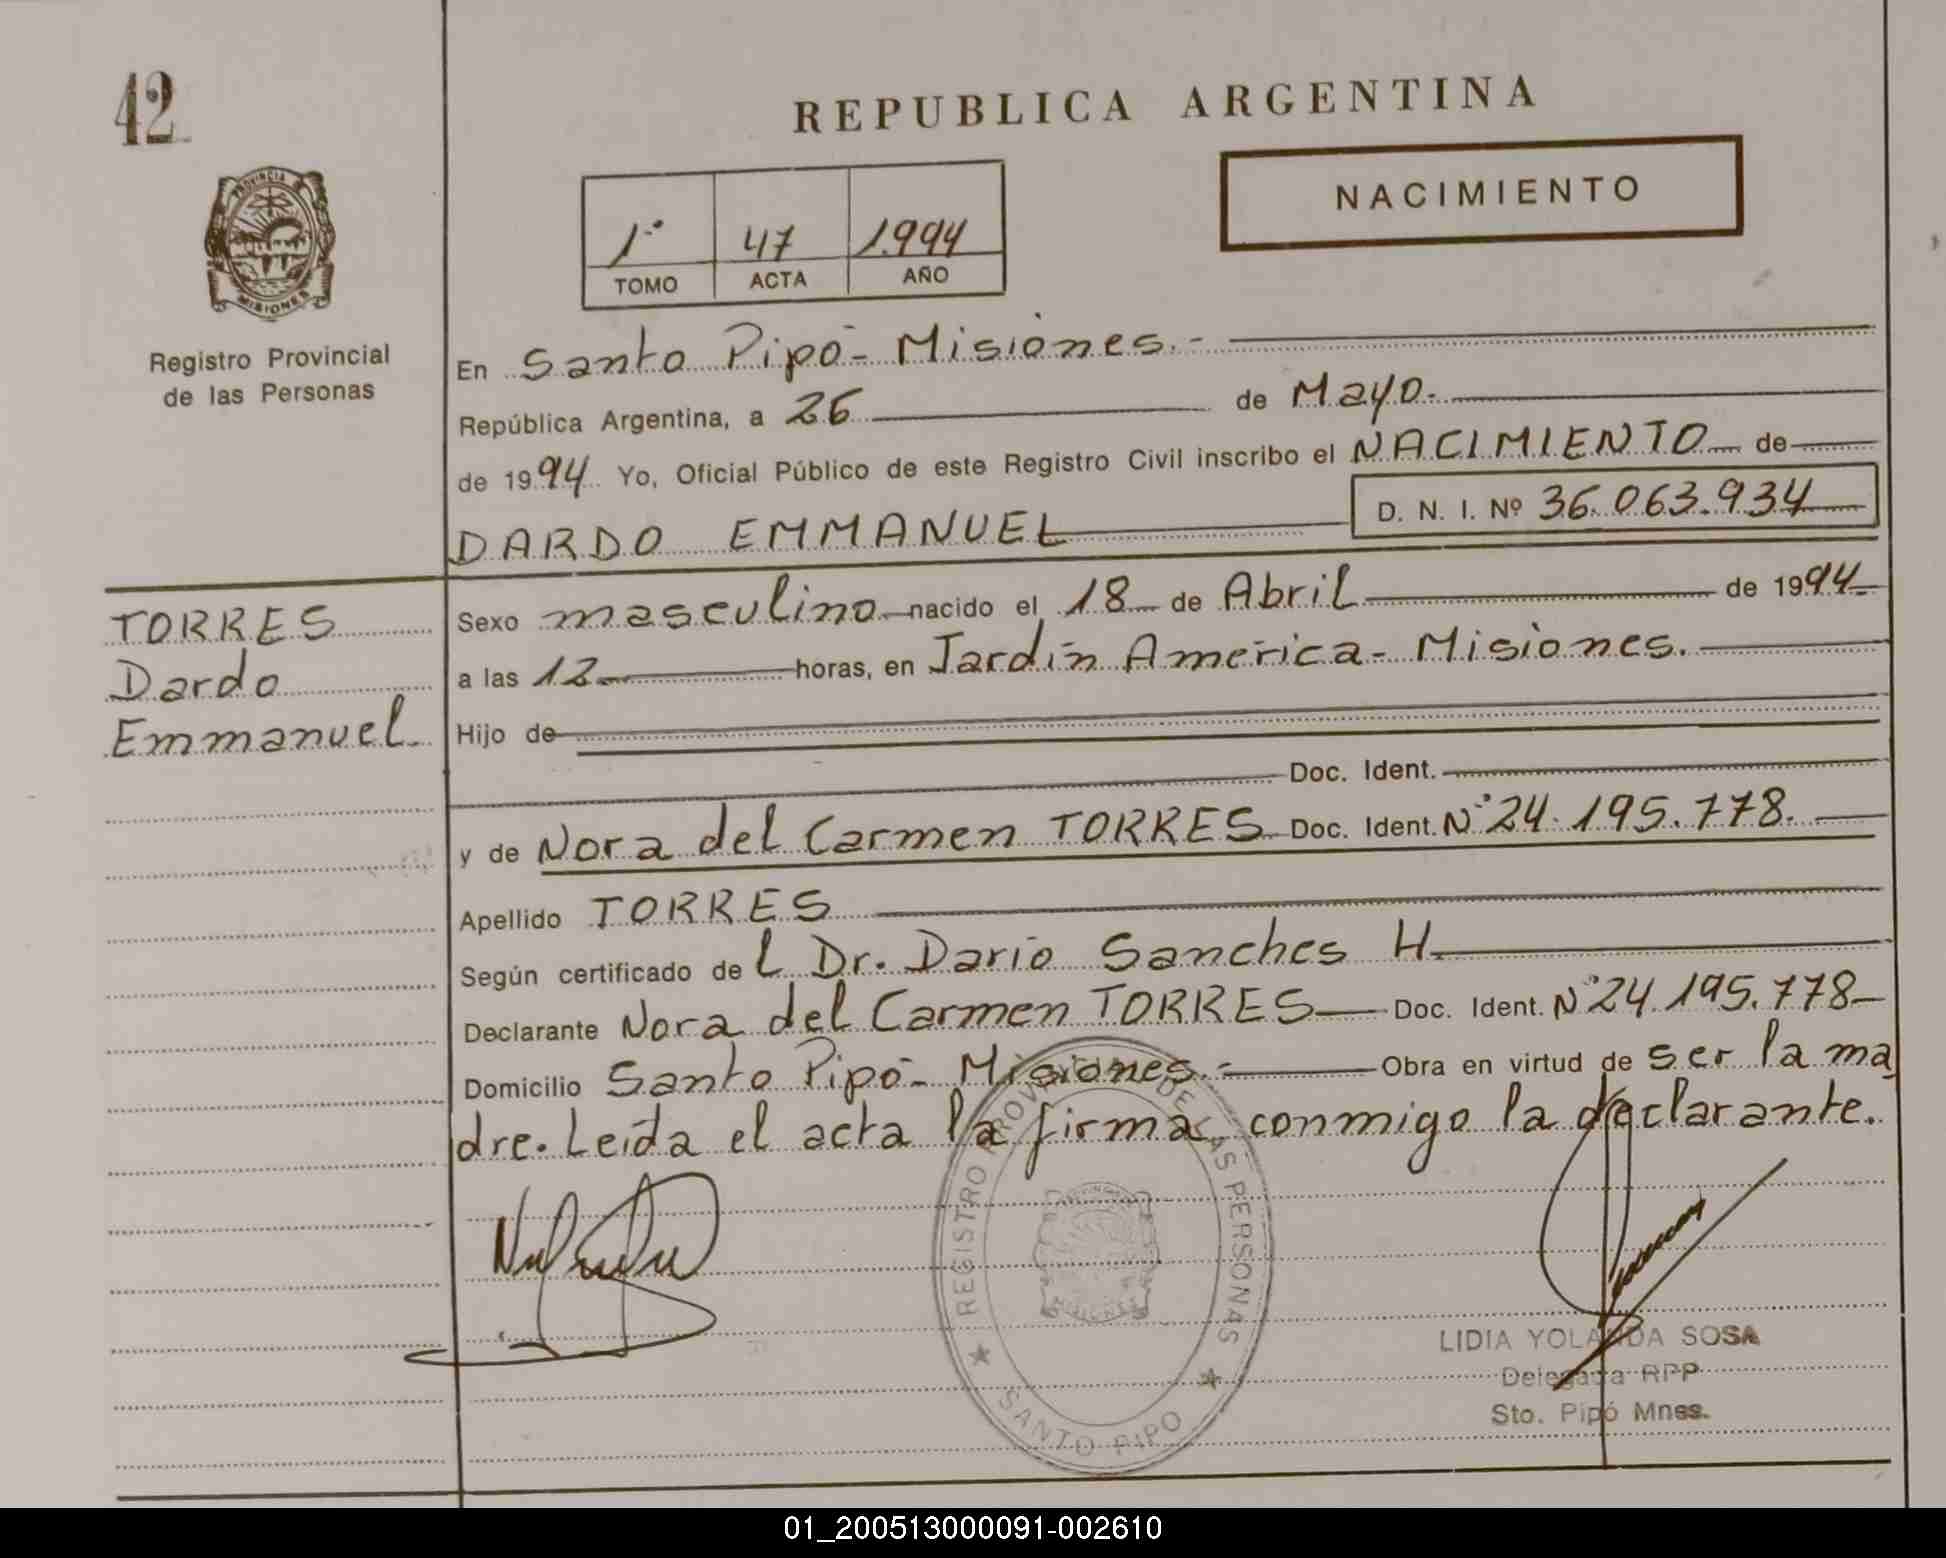 42
REPUBLICA ARGENTINA
NACIMIENTO
1º 47 1.994
TOMO ACTA AÑO
PROVINCIA
MISIONES
Registro Provincial
de las Personas
En Santo Pipó - Misiones.-
República Argentina, a 26 de Mayo.
de 1994 Yo, Oficial Público de este Registro Civil inscribo el NACIMIENTO de
DARDO EMMANUEL D. N. I. Nº 36.063.934
TORRES
Dardo
Emmanuel
Sexo masculino nacido el 18 de Abril de 1994
a las 12 horas, en Jardín América - Misiones.
Hijo de
Doc. Ident.
y de Nora del Carmen TORRES Doc. Ident. Nº 24.195.778.
Apellido TORRES
Según certificado de l Dr. Darío Sanches H.
Declarante Nora del Carmen TORRES Doc. Ident. Nº 24.195.778
Domicilio Santo Pipó - Misiones.- Obra en virtud de ser la ma
dre. Leída el acta la firma conmigo la declarante.
REGISTRO PROVINCIAL DE LAS PERSONAS
PROVINCIA
MISIONES
SANTO PIPO
LIDIA YOLANDA SOSA
Delegada RPP
Sto. Pipó Mnes.
01_200513000091-002610